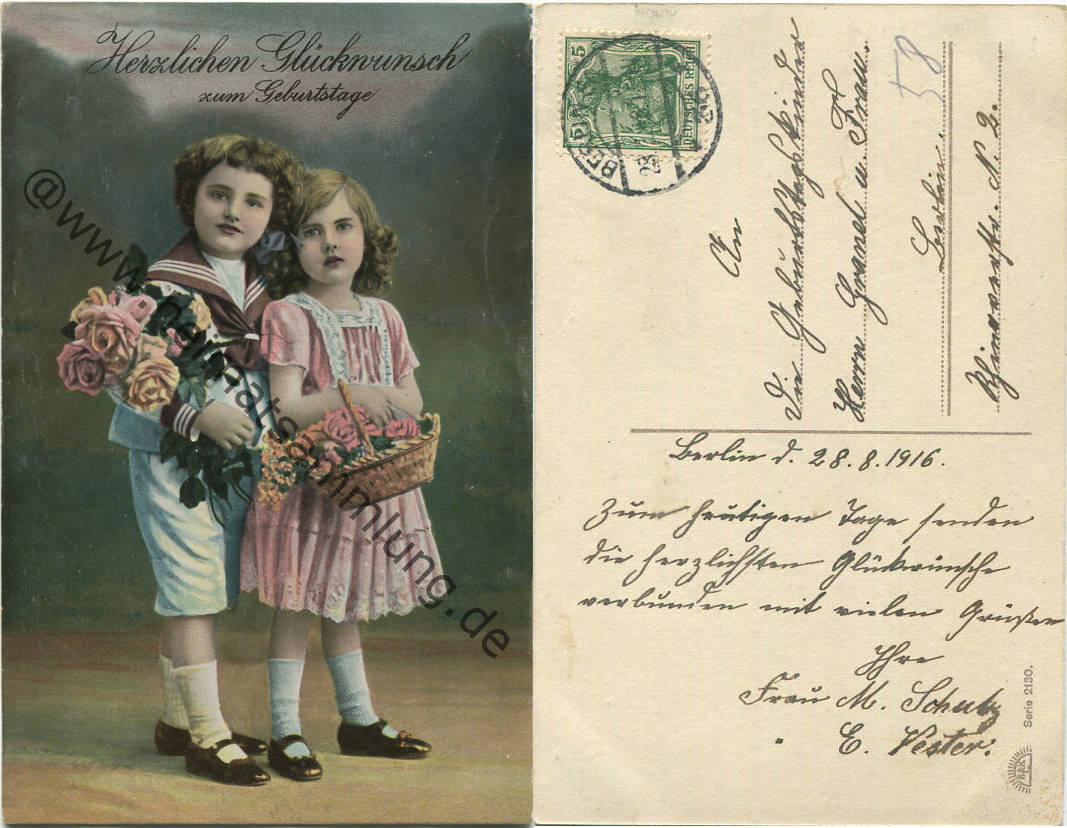 Herzlichen Glückwunsch
zum Geburtstage
@www.heimatsammlung.de
5 5
DEUTSCHES REICH
BERLIN
28
58
An
die Geburtstagskinder
Herrn Granel u. Frau.
Berlin.
N. 2.
Berlin d. 28.8.1916.
Zum heutigen Tage senden
die herzlichsten Glückwünsche
verbunden mit vielen Grüßen
Ihre
Frau M. Schulz
E. Vester.
Serie 2130.